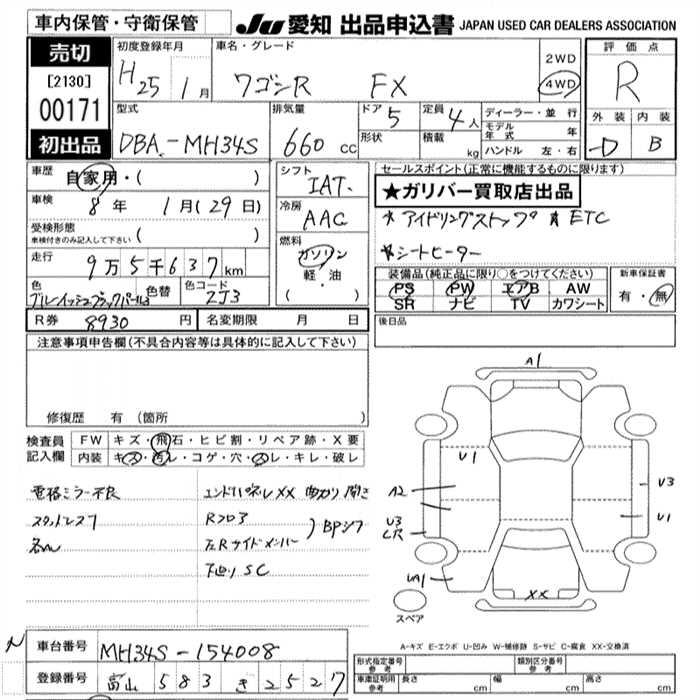 車内保管・守衛保管
JU 愛知 出品申込書 JAPAN USED CAR DEALERS ASSOCIATION
売切
[2130]
00171
初出品
初度登録年月
H25 1月
車名・グレード
ワゴンR FX
2WD
4WD
評価点
R
外装 内装
D B
型式
DBA-MH34S
排気量
660 cc
ドア 5
形状
定員 4人
積載 kg
ディーラー・並行
モデル年式 年
ハンドル 左・右
車歴 自家用・( )
車検 8年 1月(29日)
受検形態
車検付きのみ記入して下さい ( )
走行 9万5千637km
色 ブルーイッシュブラックパール3
色替
色コード 2J3
シフト IAT
冷房 AAC
燃料
ガソリン
軽・油
( )
セールスポイント(正常に機能するものに限ります)
★ガリバー買取店出品
★アイドリングストップ ★ETC
★シートヒーター
装備品(純正品に限り○をつけてください)
PS PW エアB AW
SR ナビ TV カワシート
新車保証書
有・無
R券 8930円
名変期限 月 日
後日品
注意事項申告欄(不具合内容等は具体的に記入して下さい)
修復歴 有 (箇所
検査員記入欄
FW キズ・飛石・ヒビ割・リペア跡・X要
内装 キズ・汚レ・コゲ・穴・スレ・キレ・破レ
電格ミラー不良
スタッドレス
エンドパネルXX 曲カリ
Rフロア
左Rサイドメンバー
下廻りSC
A1
U1
A2
U3
U3
U1
UA1
XX
スペア
A-キズ E-エクボ U-凹み W-補修跡 S-サビ C-腐食 XX-交換済
車台番号 MH34S-154008
登録番号 富山 583 き 2527
形式指定番号 参考
類別区分番号 参考
車庫証明用 参考 長さ cm 幅 cm 高さ cm